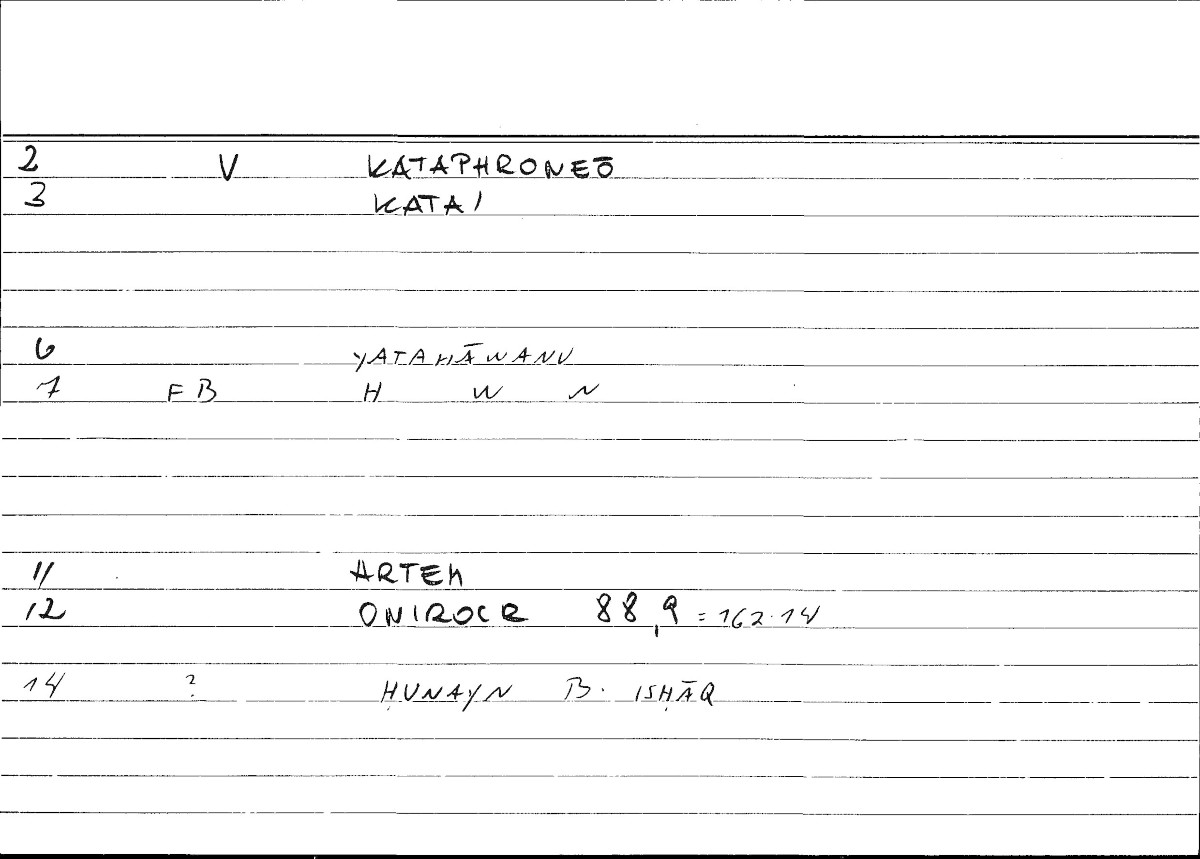 2 V KATAPHRONEŌ
3 KATAI
6 YATAHĀWANU
7 FB H W N
11 ARTEM
12 ONIROCR 88,9 = 162.14
14 ? ḤUNAYN B. ISḤĀQ